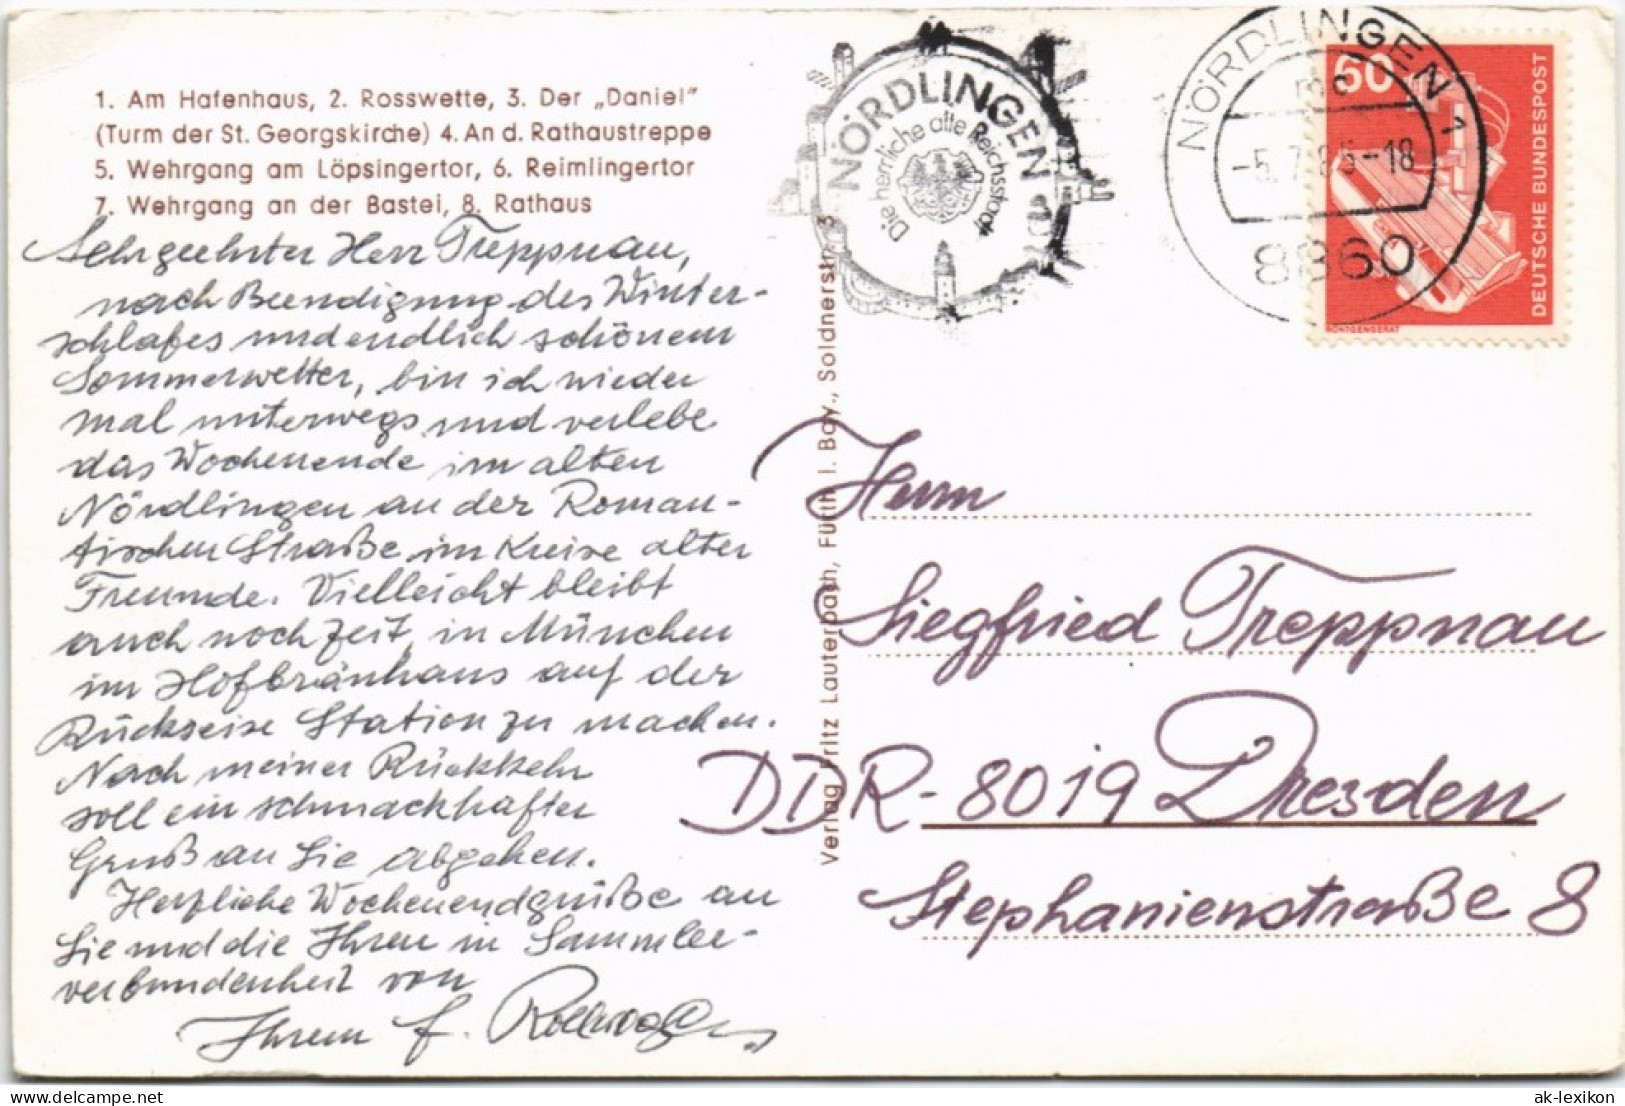 1. Am Hafenhaus, 2. Rosswette, 3. Der „Daniel"
(Turm der St. Georgskirche) 4. An d. Rathaustreppe
5. Wehrgang am Löpsingertor, 6. Reimlingertor
7. Wehrgang an der Bastei, 8. Rathaus
Sehrgeehrter Herr Treppnau,
nach Beendigung des Winter-
schlafes und endlich schönem
Sommerwetter, bin ich wieder
mal unterwegs und verlebe
das Wochenende im alten
Nördlingen an der Roman-
tischen Straße im Kreise alter
Freunde. Vielleicht bleibt
auch noch Zeit, in München
im Hofbräuhaus auf der
Rückreise Station zu machen.
Nach meiner Rückkehr
soll ein schmackhafter
Gruß an Sie abgehen.
Herzliche Wochenendgrüße an
Sie und die Ihren in Sammler-
verbundenheit von
Ihrem f.
Verlag Fritz Lauterbach, Fürth i. Bay., Soldnerstr. 3
NÖRDLINGEN
Die herrliche alte Reichsstadt
NÖRDLINGEN 1
mc
-5.7.85-18
8860
60
DEUTSCHE BUNDESPOST
RÖNTGENGERÄT
Herrn
Siegfried Treppnau
DDR-8019 Dresden
Stephanienstraße 8
ak-lexikon